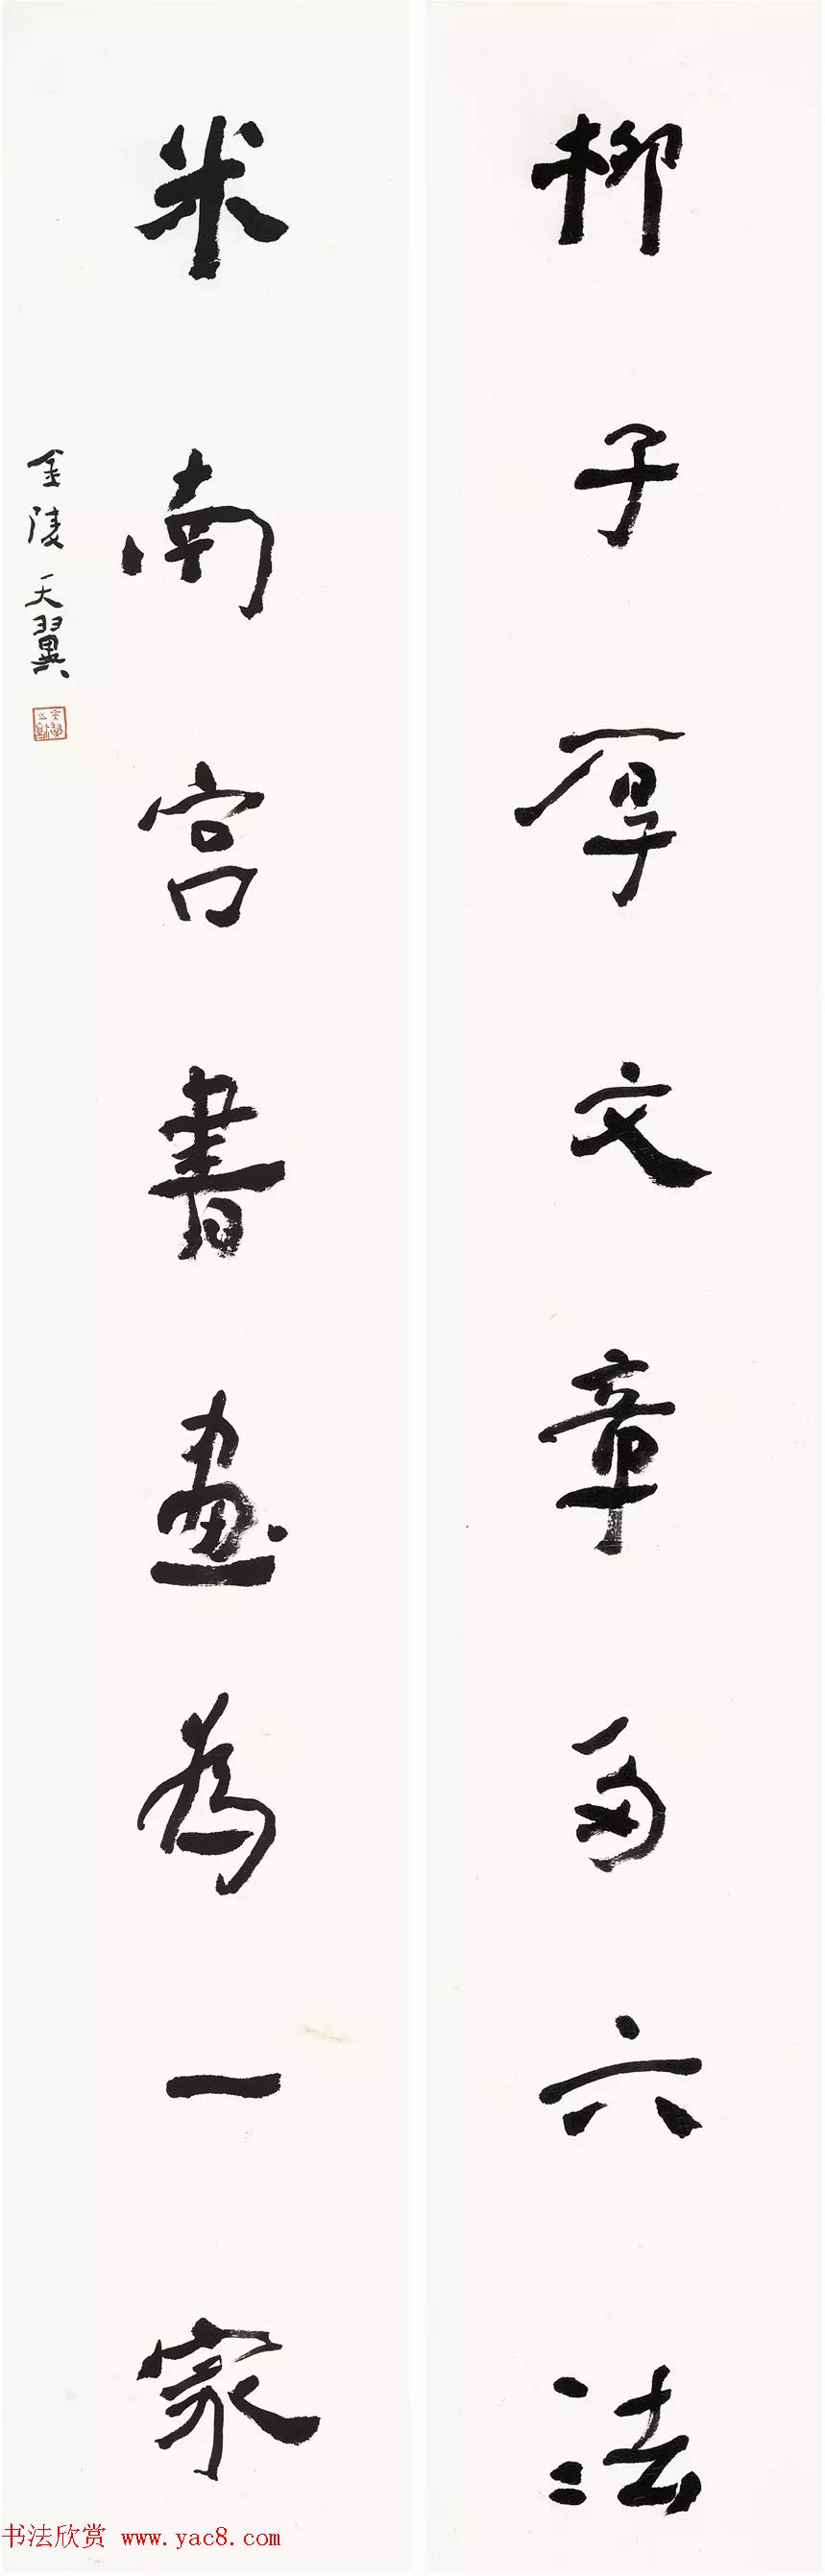 柳子厚文章六法
米南宫書畫為一家
金陵天翼
书法欣赏 www.yac8.com